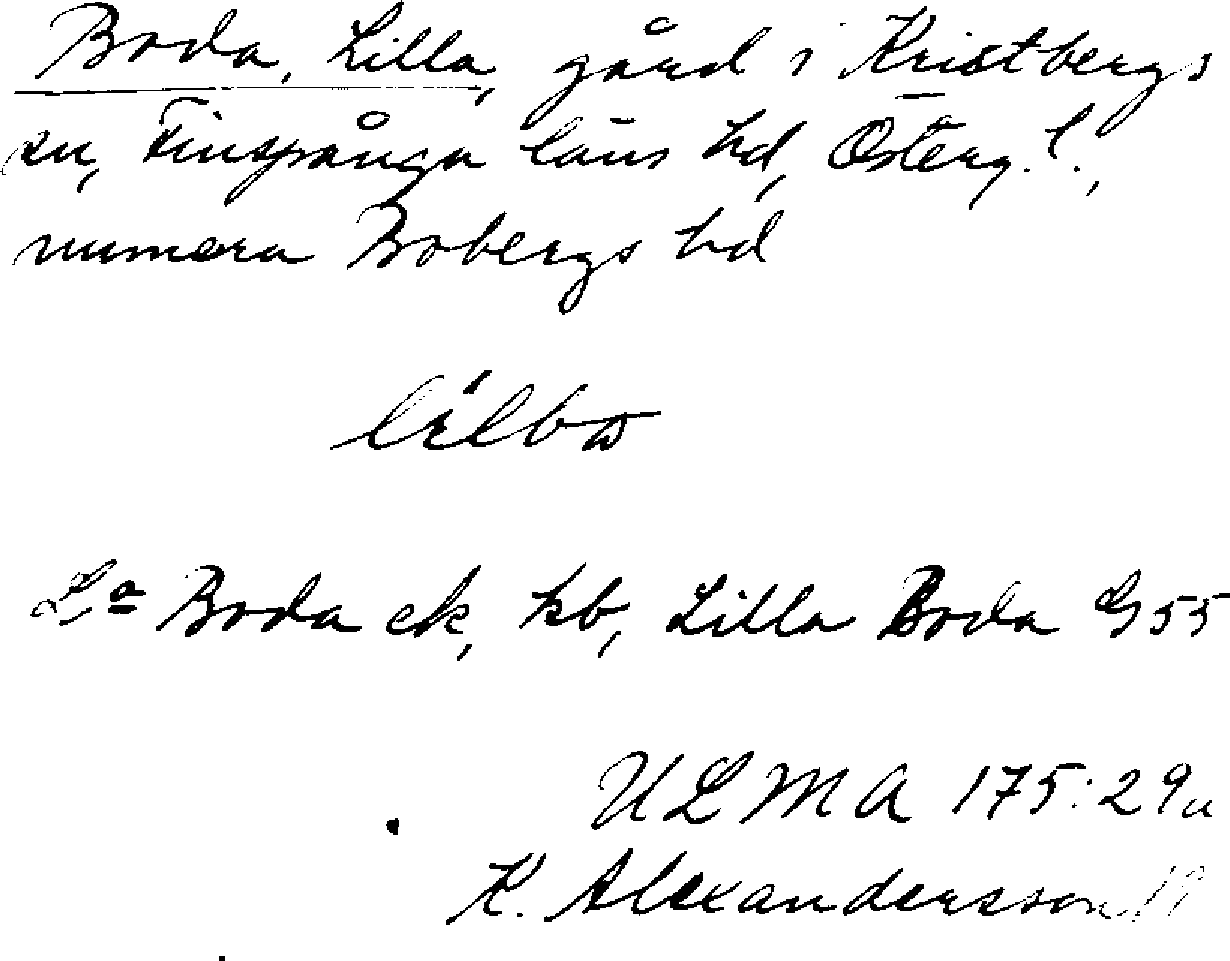 Boda, Lilla, gård i Kristbergs
sn, Finspånga läns hd, Österg. l.,
numera Bobergs hd
lilbo
La Boda ek, kb, Lilla Boda G 55
ULMA 175:29a
K. Alexandersson